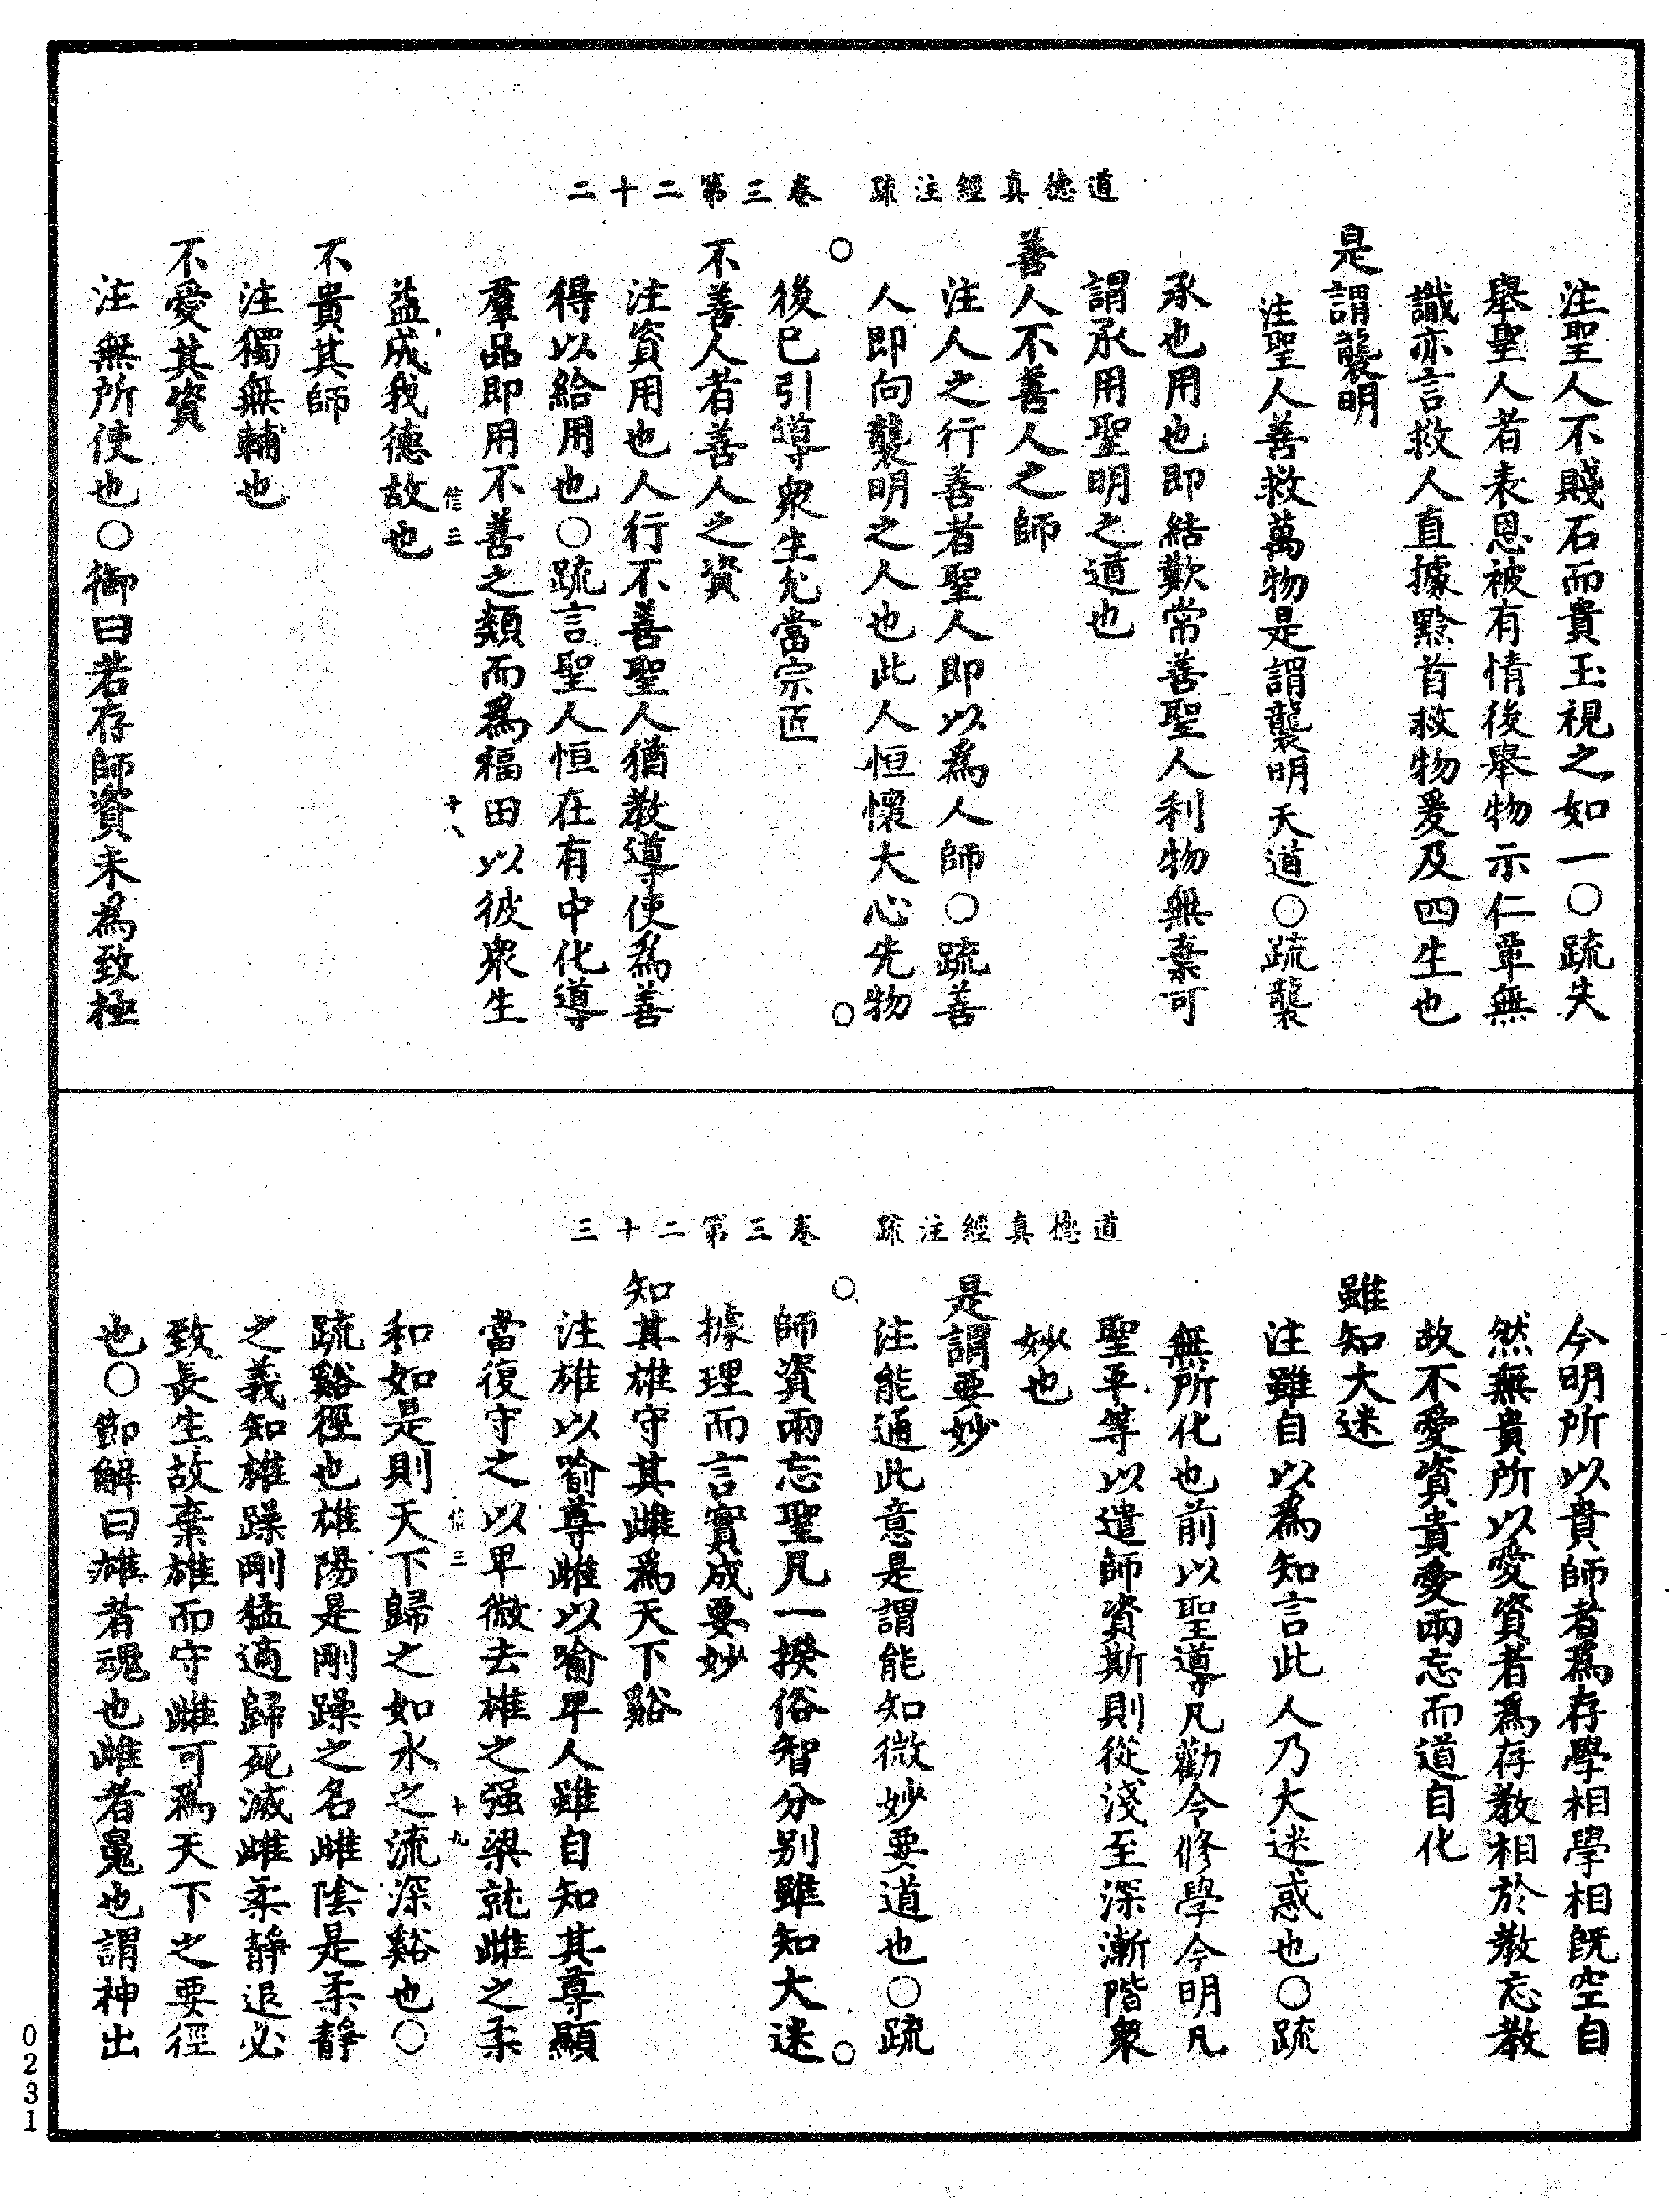 道德真經注疏　卷三第二十二
注聖人不賤石而貴玉視之如一〇疏失
舉聖人者表恩被有情後舉物示仁覃無
識亦言救人直據黔首救物爰及四生也
是謂襲明
注聖人善救萬物是謂襲明天道〇疏襲
承也用也即結歎常善聖人利物無棄可
謂承用聖明之道也
善人不善人之師
注人之行善者聖人即以為人師〇疏善
人即向襲明之人也此人恒懷大心先物
後己引導衆生允當宗匠
不善人者善人之資
注資用也人行不善聖人猶教導使為善
得以給用也〇疏言聖人恒在有中化導
羣品即用不善之類而為福田以彼衆生
益成我德故也
不貴其師
注獨無輔也
不愛其資
注無所使也〇御曰若存師資未為致極
道德真經注疏　卷三第二十三
今明所以貴師者為存學相學相既空自
然無貴所以愛資者為存教相於教忘教
故不愛資貴愛兩忘而道自化
雖知大迷
注雖自以為知言此人乃大迷惑也〇疏
無所化也前以聖導凡勸令修學今明凡
聖平等以遣師資斯則從淺至深漸階衆
妙也
是謂要妙
注能通此意是謂能知微妙要道也〇疏
師資兩忘聖凡一揆俗智分別雖知大迷
據理而言實成要妙
知其雄守其雌為天下谿
注雄以喻尊雌以喻卑人雖自知其尊顯
當復守之以卑微去雄之强梁就雌之柔
和如是則天下歸之如水之流深谿也〇
疏谿徑也雄陽是剛躁之名雌陰是柔靜
之義知雄躁剛猛適歸死滅雌柔靜退必
致長生故棄雄而守雌可為天下之要徑
也〇節解曰雄者魂也雌者魄也謂神出
0231